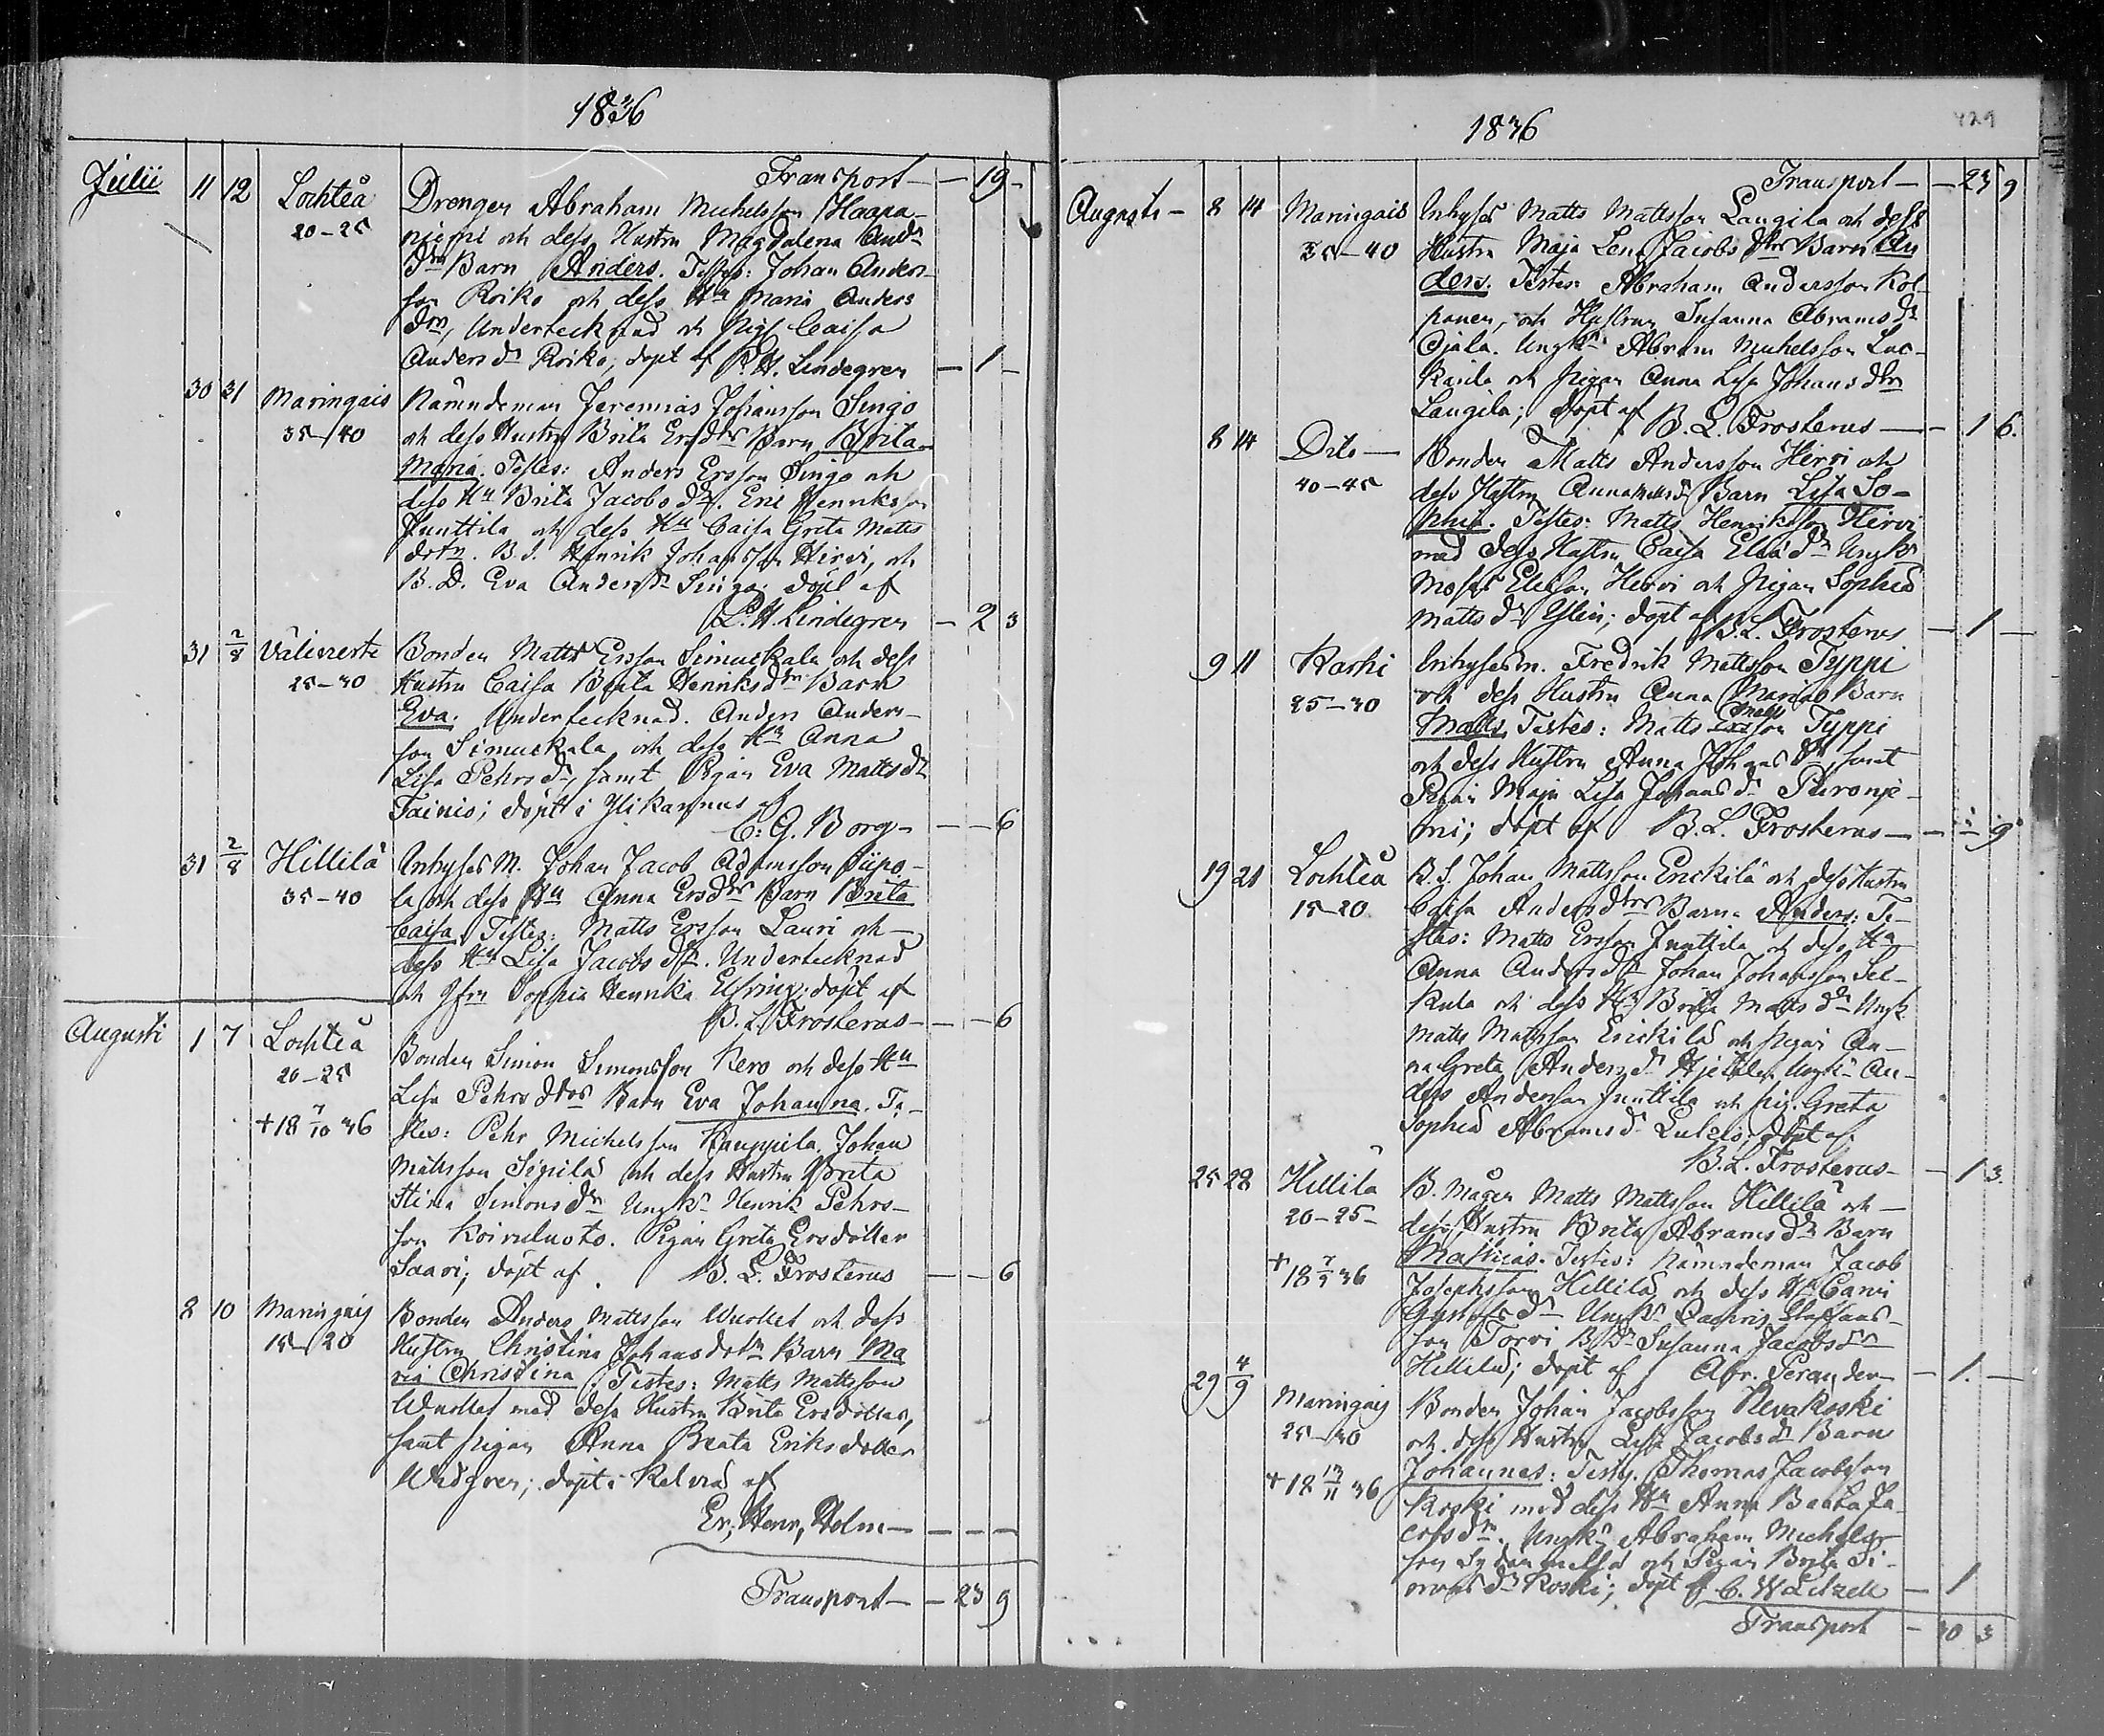 1836
Transport — — 19 —
Julii 11 12 Lochteå Drengen Abraham Michelsson Haapa-
20-25 niemi och dess Hustru Magdalena And:
dtr Barn Anders. Testes: Johan Anders-
son Roiko och dess Hu Maria Anders
dtr, Undertecknad och Pig: Caisa
Anders dr Roiko, döpt af P. H. Lindegren — 1 —
30 31 Maringais Nämndeman Jeremias Johansson Singo
35-40 och dess Hustru Brita Ersdtrs Barn Brita
Maria. Testes: Anders Ersson Singo och
dess Hu Brita Jacobs dr. Eric Henriksson
Junttila och dess Hu Caisa Greta Matts
dotr. B. S. Henrik Johansson Hirvi, och
B. D. Eva Anders dr Singo; döpt af
L. H. Lindegren — 2 3
31 2/8 Välivirre Bonden Matts Ersson Simuckala och dess
25-30 Hustru Caisa Brita Henriksdtr Barn
Eva. Undertecknad. Anders Anders-
son Simuckala och dess Hu Anna
Lisa Pehrs dr, samt Pigan Eva Matts dr
Tainio; döpt i Ylikannus af
C: G. Borg — — — 6
31 2/8 Hillilä Inhyses M. Johan Jacob Adamsson Siipo-
35-40 la och dess Hu Anna Ersdtrs Barn Brita
Caisa. Testes: Matts Ersson Lauri och
dess Hu Lisa Jacobs dr. Undertecknad
och Jfru Sophia Henrika Elfving; döpt af
B. L. Frosterus — — — 6
Augusti 1 7 Lochteå Bonden Simon Simonsson Kero och dess Hu
20-25 Lisa Pehrs dtrs Barn Eva Johanna. Te-
+18 7/10 36 stes: Pehr Michelsson Kauppila. Johan
Mattsson Sipilä och dess Hustru Brita
Stina Simons dr Ungk: Henrik Pehrs-
son Koiruluoto. Pigan Greta Ersdotter
Saari; döpt af B. L. Frosterus — — 6
2 10 Maringais Bonden Anders Mattsson Wuollet och dess
15-20 Hustru Christina Johans dotr Barn Ma
ria Christina. Testes: Matts Mattsson
Wuollet med dess Hustru Brita Ersdotter,
samt pigan Anna Beata Eriks dotter
Widgren; döpt i Kelviå af
Er, Henr, Holm — — — —
Transport — — 23 9
1836
429
Transport — — 23 9
Augusti — 8 14 Maringais Inhyses Matts Mattsson Laugila och dess
35-40 Hustru Maja Lena Jacobs dtrs Barn An
ders. Testes: Abraham Andersson Kol-
panen, och Hustrun Susanna Abrams dr
Ojala. Ungk: Abram Michelsson Luo-
kasila och Pigan Anna Lisa Johans dtr
Laugila; döpt af B. L. Frosterus — — 1 6.
8 14 Dito — Bonden Matts Andersson Hirvi och
40-45 dess Hustru Anna Matts dr Barn Lisa So-
phia. Testes: Matts Henriksson Hirvi
med dess Hustru Caisa Eliæ dr Ungk:
Moses Eliæson Hirvi och Pigan Sophia
Matts dr Ylin; döpt af B. L. Frosterus — 1 —
9 11 Karhi Inhyses m. Fredrik Mattsson Typpi
25-30 och dess Hustru Anna Marias Barn
Matts, Testes: Matts Matsson Typpi
och dess Hustru Anna Johans dr, samt
Pigan Maja Lisa Johans dr Petronie-
mi; döpt af B. L. Frosterus — — — 9
19 21 Lochteå B. S. Johan Mattsson Erickilä och dess Hustru
15-20 Caisa Anders dtrs Barn Anders: Te-
stes: Matts Ersson Junttila och dess Hu
Anna Anders dr Johan Johansson Sel-
kula och dess Hu Brita Matts dr Ungk
Matts Mattsson Erickilä och Pigan An-
na Greta Anders dr Hjetala. Ungk: An-
ders Andersson Junttila och Pig. Greta
Sophia Abrams dr; döpt af
B. L. Frosterus — — 1 3.
25 28 Hillilä B. Mågen Matts Mattsson Hillilä och
20-25 dess Hustru Brita Abrams dr Barn
+18 7/9 36 Matthias. Testes: Nämndeman Jacob
Josephsson Hillilä och dess Hu Carin
Gustafs dr Ungk: Zachris Staffans-
son Torvi B. Dr Susanna Jacobs dr
Hillilä; döpt af Abr. Perander — 1. —
29 4/9 Maringais Bonden Johan Jacobsson Kevakoski
25-30 och dess Hustru Lisa Jacobs dr Barn
+18 13/11 36 Johannes: Testes. Thomas Jacobsson
Koski med dess Hu Anna Beata Ja
cobs dr. Ungk: Abraham Michels-
son Sydänmetsä och Pigan Brita Si-
mons dr Koski; döpt af C. W. — 1
Transport — 30 3